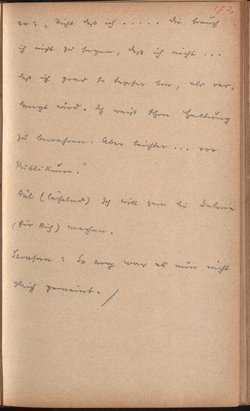 er: „Nicht daß ich ..... Sie brauch
ich nicht zu sagen, daß ich nicht ...
daß ich grad so tapfer bin, als ver-
langt wird. Ich weiß Ihre Haltung
zu bewahren. Aber leichter ... vor
Publikum."
(lächelnd) Ich will gern die
(für Dich) machen.
: So arg war es nun nicht
gemeint.